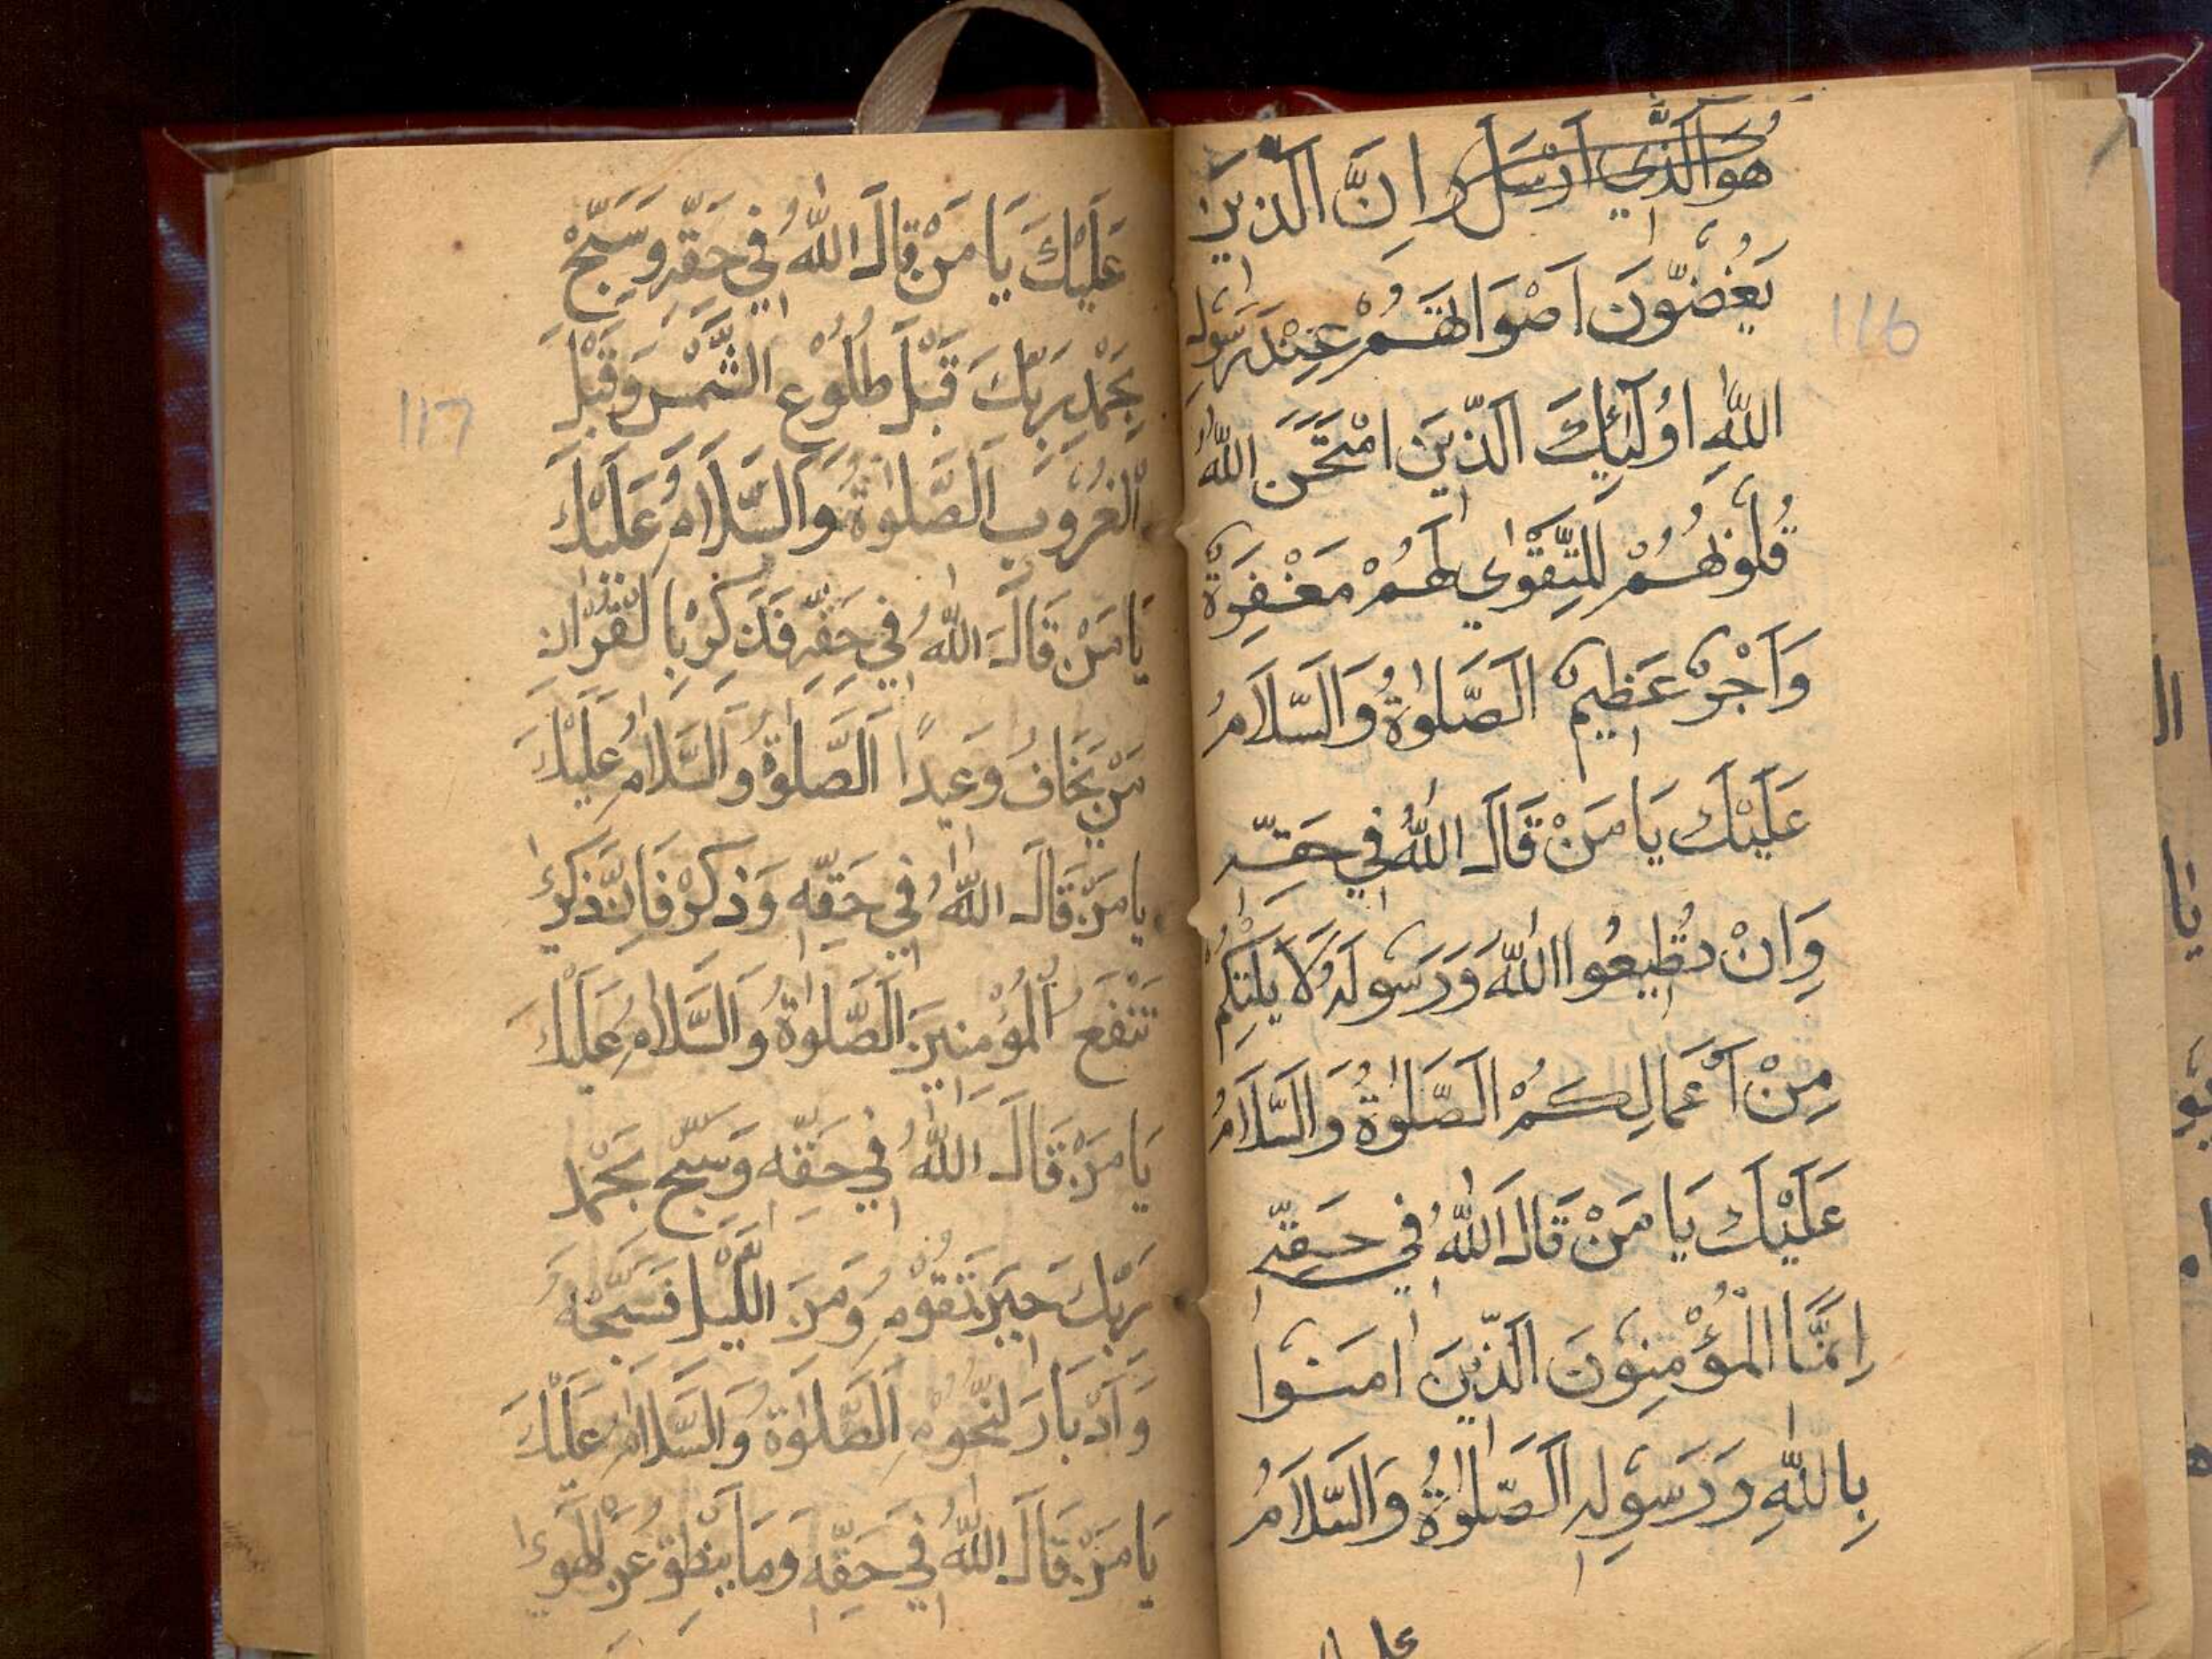 هُوَ الَّذِي اَرْسَلَ رَ اِنَّ الَّذِيْنَ
يَغُضُّوْنَ اَصْوَاتَهُمْ عِنْدَ رَسُوْلِ
اللّٰهِ اُولٰٓئِكَ الَّذِيْنَ امْتَحَنَ اللّٰهُ
قُلُوْبَهُمْ لِلتَّقْوٰي لَهُمْ مَغْفِرَةٌ
وَاَجْرٌ عَظِيْمٌ اَلصَّلٰوةُ وَالسَّلَامُ
عَلَيْكَ يَا مَنْ قَالَ اللّٰهُ فِي حَقِّهٖ
وَاِنْ تُطِيْعُوا اللّٰهَ وَرَسُوْلَهٗ لَا يَلِتْكُمْ
مِنْ اَعْمَالِكُمْ اَلصَّلٰوةُ وَالسَّلَامُ
عَلَيْكَ يَا مَنْ قَالَ اللّٰهُ فِي حَقِّهٖ
اِنَّمَا الْمُؤْمِنُوْنَ الَّذِيْنَ اٰمَنُوْا
بِاللّٰهِ وَرَسُوْلِهٖ اَلصَّلٰوةُ وَالسَّلَامُ
116
عَلَيْكَ يَا مَنْ قَالَ اللّٰهُ فِي حَقِّهٖ وَسَبِّحْ
بِحَمْدِ رَبِّكَ قَبْلَ طُلُوْعِ الشَّمْسِ وَقَبْلَ
الْغُرُوْبِ اَلصَّلٰوةُ وَالسَّلَامُ عَلَيْكَ
يَا مَنْ قَالَ اللّٰهُ فِي حَقِّهٖ فَذَكِّرْ بِالْقُرْاٰنِ
مَنْ يَخَافُ وَعِيْدًا اَلصَّلٰوةُ وَالسَّلَامُ عَلَيْكَ
يَا مَنْ قَالَ اللّٰهُ فِي حَقِّهٖ وَذَكِّرْ فَاِنَّ ذِكْرٰي
تَنْفَعُ الْمُؤْمِنِيْنَ اَلصَّلٰوةُ وَالسَّلَامُ عَلَيْكَ
يَا مَنْ قَالَ اللّٰهُ فِي حَقِّهٖ وَسَبِّحْ بِحَمْدِ
رَبِّكَ حِيْنَ تَقُوْمُ وَمِنَ اللَّيْلِ فَسَبِّحْهُ
وَاَدْبَارَ لنُّجُوْمِ اَلصَّلٰوةُ وَالسَّلَامُ عَلَيْكَ
يَا مَنْ قَالَ اللّٰهُ فِي حَقِّهٖ وَمَا يَنْطِقُ عَنِ الْهَوٰي
117